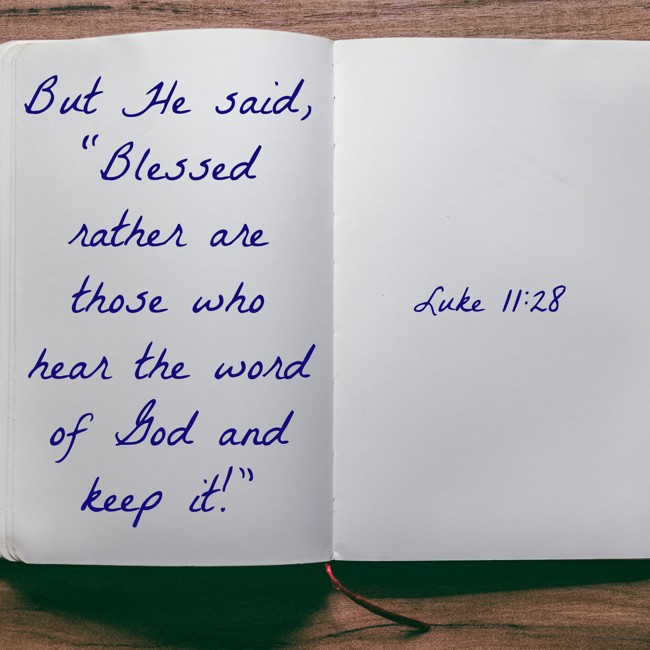 But He said,
"Blessed
rather are
those who
hear the word
of God and
keep it!"
Luke 11:28